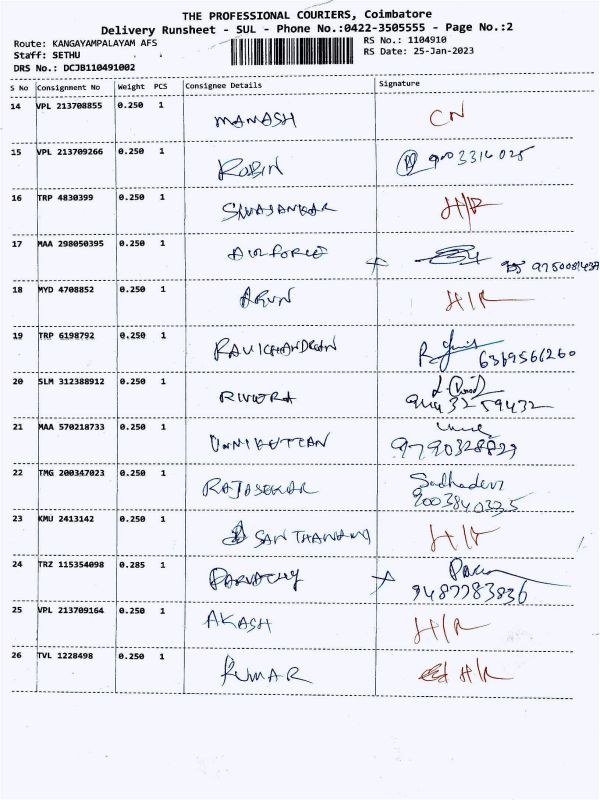 THE PROFESSIONAL COURIERS, Coimbatore
Delivery Runsheet - SUL - Phone No.:0422-3505555 - Page No.:2
Route: KANGAYAMPALAYAM AFS
RS No.: 1104910
Staff: SETHU
RS Date: 25-Jan-2023
DRS No.: DCJB110491002
S No Consignment No Weight PCS Consignee Details Signature
14 VPL 213708855 0.250 1 MAMASH CN
15 VPL 213709266 0.250 1 ROBIN 9003316025
16 TRP 4830399 0.250 1 SIVASANKAR H/R
17 MAA 298050395 0.250 1 AIRFORCE
18 MYD 4708852 0.250 1 ARUN H/R
19 TRP 6198792 0.250 1 RAVICHANDRAN 6369566260
20 SLM 312388912 0.250 1 RIVERA
21 MAA 570218733 0.250 1 UNNIKUTTAN 9790328829
22 TMG 200347023 0.250 1 RAJASEKAR Sadhadevi
9003840335
23 KMU 2413142 0.250 1 SANTHANAM H/R
24 TRZ 115354098 0.285 1 PARVATHY
9487783836
25 VPL 213709164 0.250 1 AKASH H/R
26 TVL 1228498 0.250 1 KUMAR H/R